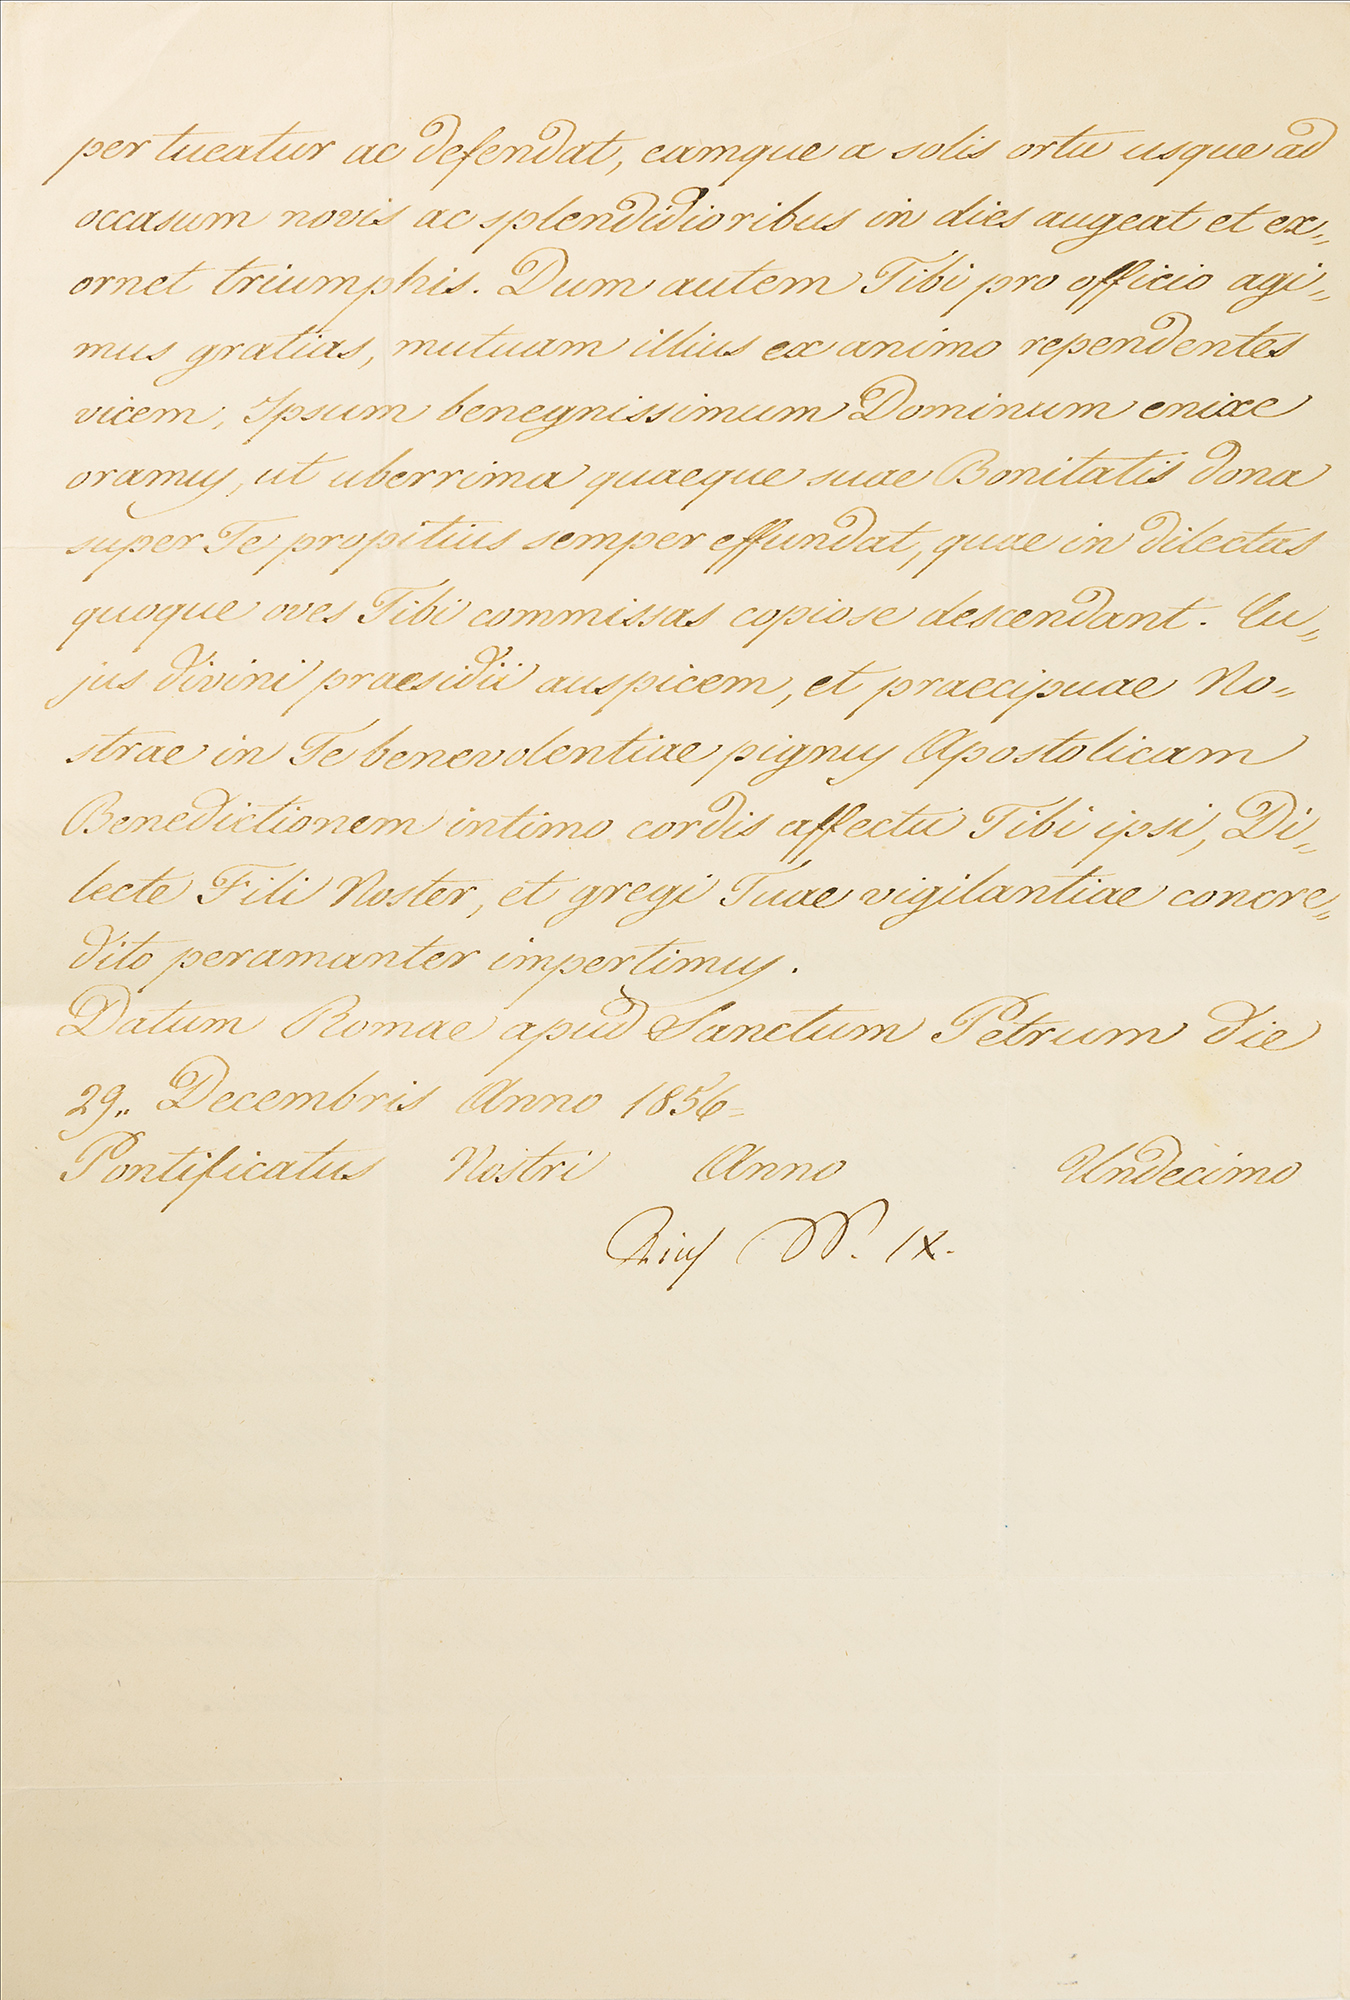 per tueatur ac defendat, eamque a solis ortu usque ad
occasum novis ac splendidioribus in dies augeat et ex„
ornet triumphis. Dum autem Tibi pro officio agi„
mus gratias, mutuam illius ex animo rependentes
vicem, Ipsum benegnissimum Dominum enixe
oramus, ut uberrima quaeque suae Bonitatis dona
super Te propitius semper effundat, quae in dilectas
quoque oves Tibi commissas copiose descendant. Cu„
jus divini praesidii auspicem, et praecipuae No„
strae in Te benevolentiae pignus Apostolicam
Benedictionem intimo cordis affectu Tibi ipsi, Di„
lecte Fili Noster, et gregi Tuae vigilantiae concre„
dito peramanter impertimus.
Datum Romae apud Sanctum Petrum die
29„ Decembris Anno 1856=
Pontificatus Nostri Anno Undecimo
Pius PP. IX.